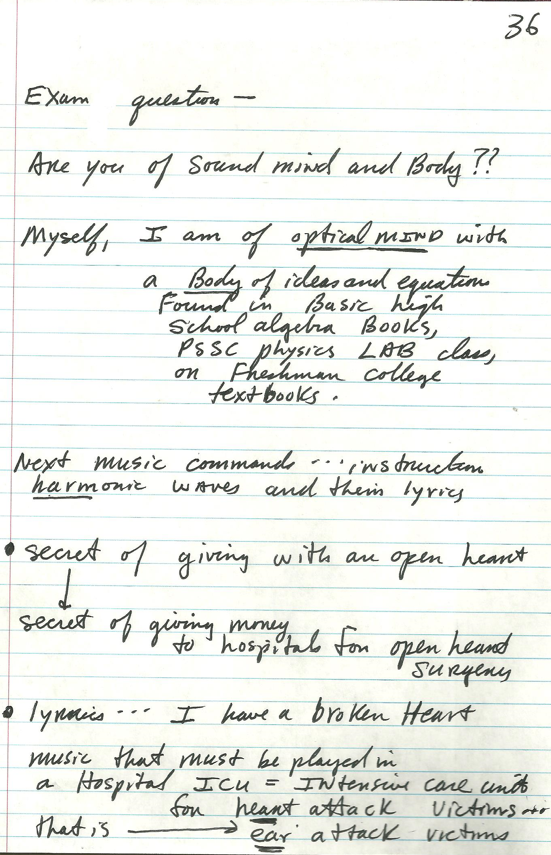 36
Exam question —
Are you of Sound mind and Body??
Myself, I am of optical MIND with
a Body of ideas and equations
Found in Basic high
School algebra Books,
PSSC physics LAB class,
or Freshman college
textbooks.
Next music commands ... instruction
harmonic waves and their lyrics
• secret of giving with an open heart
↓
secret of giving money
to hospitals for open heart
surgery
• lyrics ... I have a broken Heart
music that must be played in
a Hospital ICU = INtensive care unit
for heart attack victims ...
that is → ear attack victims